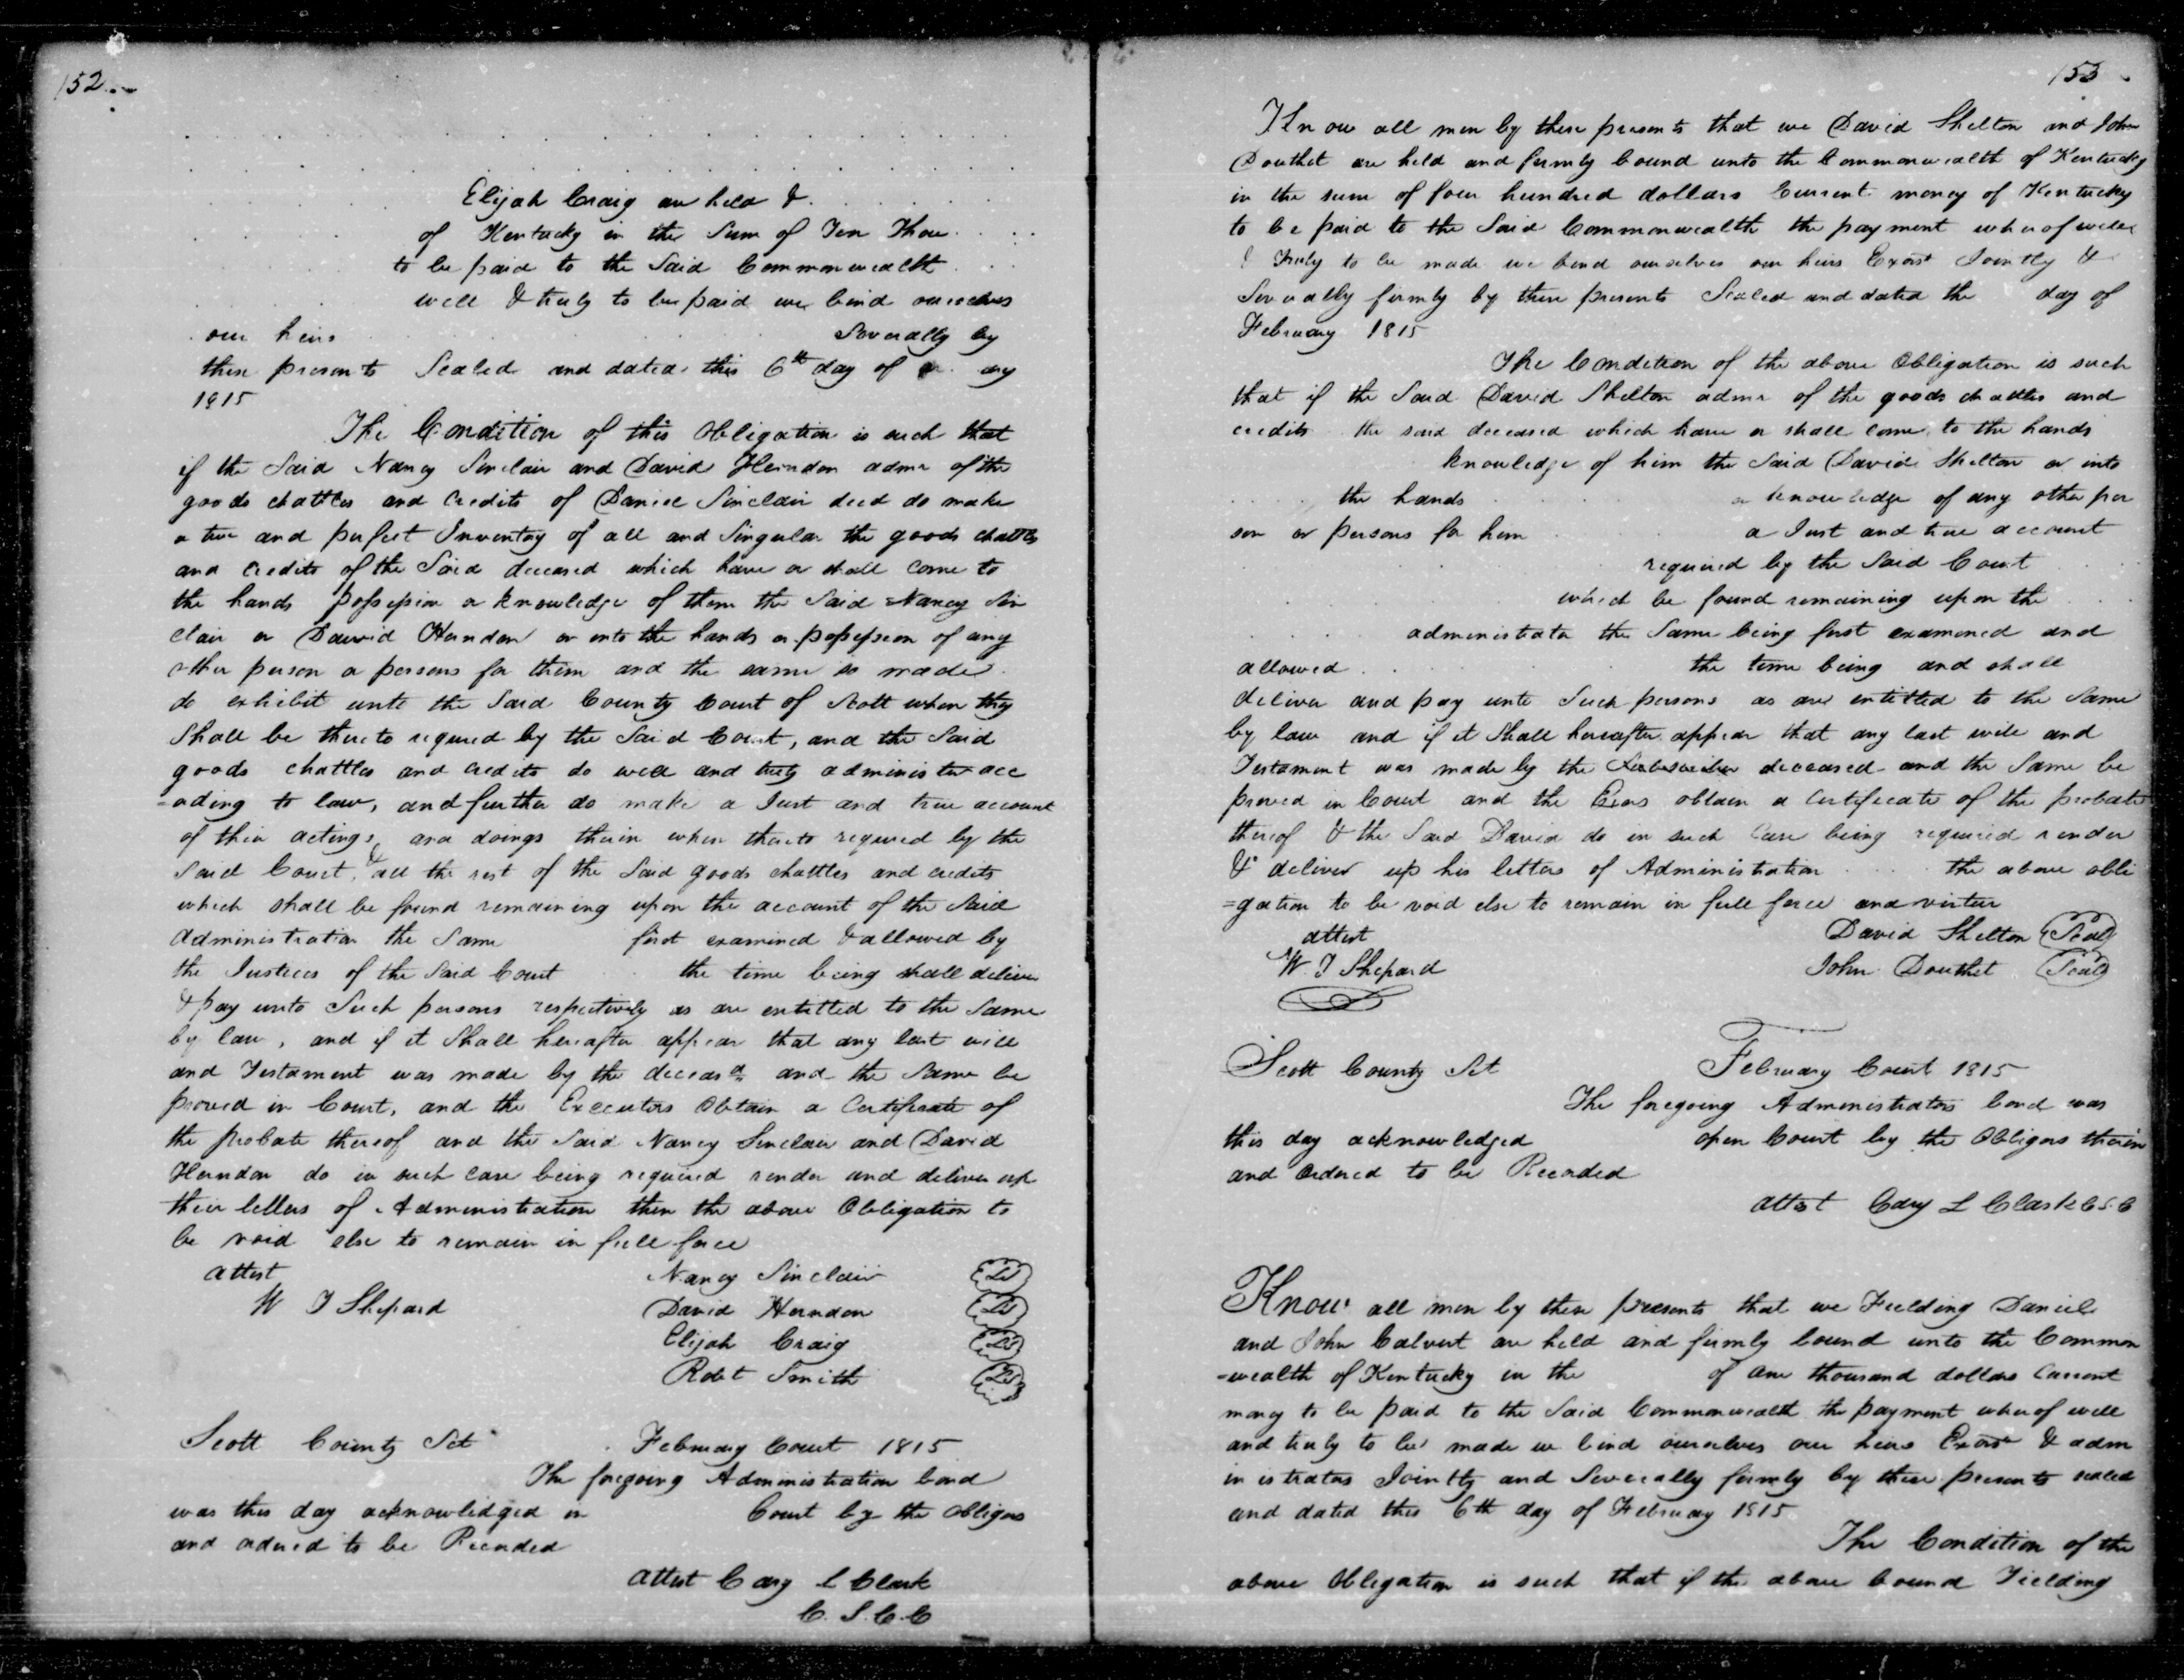 152
Elijah Craig are held &
of Kentucky in the Sum of Ten Thou
to be paid to the Said Commonwealth
well & truly to be paid we bind ourselves
our heirs Severally by
these presents Sealed and dated this 6th day of ary
1815
The Condition of this Obligation is such that
if the Said Nancy Sinclair and David Herndon admr of the
goods chattles and Credits of Daniel Sinclair decd do make
a true and perfect Inventory of all and Singular the goods chattles
and Credits of the Said deceased which have or shall come to
the hands possession or knowledge of them the Said Nancy Sin
clair or David Herndon or into the hands or possession of any
other person or persons for them and the same so made
do exhibit unto the Said County Court of Scott when they
Shall be thereto required by the Said Court, and the Said
goods chattles and credits do well and truly administer acc
=ording to law, and further do make a Just and true account
of their actings and doings therein when thereto required by the
Said Court, & all the rest of the Said goods chattles and credits
which shall be found remaining upon the account of the Said
Administration the Same first examined & allowed by
the Justices of the Said Court the time being shall deliver
& pay unto Such persons respectively as are entitled to the Same
by law, and if it Shall hereafter appear that any last will
and Testament was made by the deceasd and the Same be
proved in Court, and the Executors Obtain a Certificate of
the probate thereof and the Said Nancy Sinclair and David
Herndon do in such case being required render and deliver up
their letters of Administration then the above Obligation to
be void else to remain in full force
attest Nancy Sinclair LS
W T Shepard David Herndon LS
Elijah Craig LS
Robt Smith LS
Scott County Sct February Court 1815
The foregoing Administration bond
was this day acknowledged in Court by the obligors
and ordered to be Recorded
attest Cary L Clark
C. S. C. C
153
Know all men by these presents that we David Shelton and John
Douthet are held and firmly bound unto the Commonwealth of Kentucky
in the sum of four hundred dollars Current money of Kentucky
to be paid to the Said Commonwealth the payment whereof well
& Truly to be made we bind ourselves our heirs Exors Jointly &
Severally firmly by these presents Sealed and dated the day of
February 1815
The Condition of the above Obligation is such
that if the Said David Shelton admr of the goods chattles and
credits the said deceased which have or shall come to the hands
knowledge of him the Said David Shelton or into
the hands or knowledge of any other per
son or persons for him a Just and true account
required by the Said Court
which be found remaining upon the
administrator the Same being first examined and
allowed the time being and shall
deliver and pay unto Such persons as are entitled to the Same
by law and if it Shall hereafter appear that any last will and
Testament was made by the deceased and the Same be
proved in Court and the Exors obtain a Certificate of the probate
thereof & the Said David do in such Case being required render
& deliver up his letters of Administration the above obli
=gation to be void else to remain in full force and virtue
attest David Shelton Seal
W. T Shepard John Douthet Seal
Scott County Sct February Court 1815
The foregoing Administrators bond was
this day acknowledged open Court by the Obligors therein
and Ordered to be Recorded
attest Cary L Clark C S. C
Know all men by these presents that we Fielding Daniel
and John Calvert are held and firmly bound unto the Common
=wealth of Kentucky in the of one thousand dollars Current
money to be paid to the Said Commonwealth the payment whereof well
and truly to be made we bind ourselves our heirs Exors & adm
inistrators Jointly and Severally firmly by these presents sealed
and dated this 6th day of February 1815
The Condition of the
above Obligation is such that if the above bound Fielding